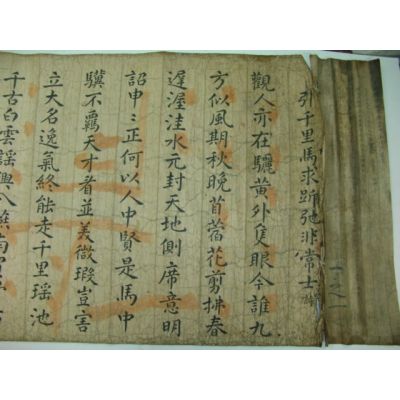 引千里馬求跅弛非常士詩
觀人亦在驪黃外隻眼今誰九
方似風期秋晚苜蓿花剪拂春
遲渥洼水元封天地側席意明
詔申〻正何以人中賢是馬中
驥不羈天才者並美微瑕豈害
立大名逸氣終能走千里瑤池
千古白雲謠興八